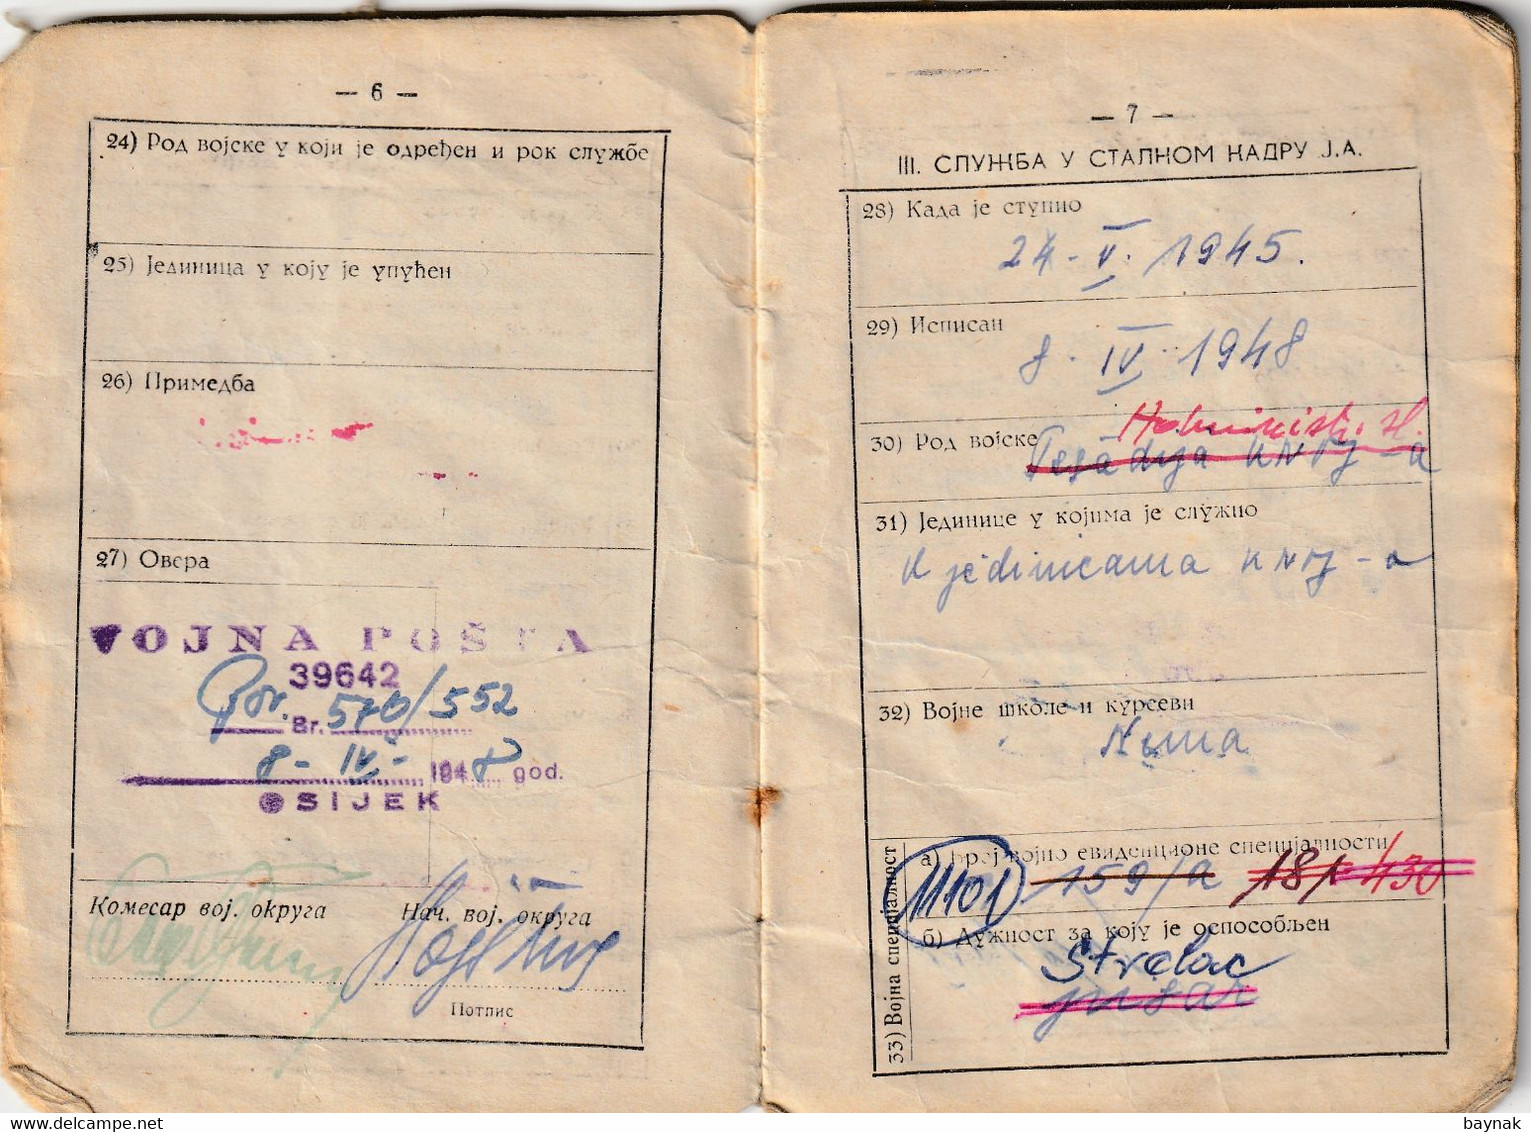 — 6 —
24) Род војске у који је одређен и рок службе
25) Јединица у коју је упућен
26) Примедба
27) Овера
VOJNA POŠTA
39642
Br. 570/552
8 - IV - 1948 god.
OSIJEK
Комесар вој. округа
Нач. вој. округа
Потпис
— 7 —
III. СЛУЖБА У СТАЛНОМ КАДРУ Ј.А.
28) Када је ступио
24 - V. 1945.
29) Исписан
8. IV. 1948
30) Род војске
Pešadija KNOJ-a
31) Јединице у којима је служио
U jedinicama KNOJ-a
32) Војне школе и курсеви
Nema
33) Војна специјалност
а) Број војно евиденционе специјалности
11101 159/a 181 430
б) Дужност за коју је оспособљен
Strelac
pušar
baynak